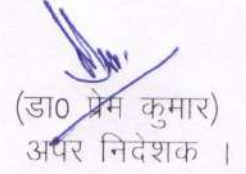 (डा0 प्रेम कुमार)
अपर निदेशक ।